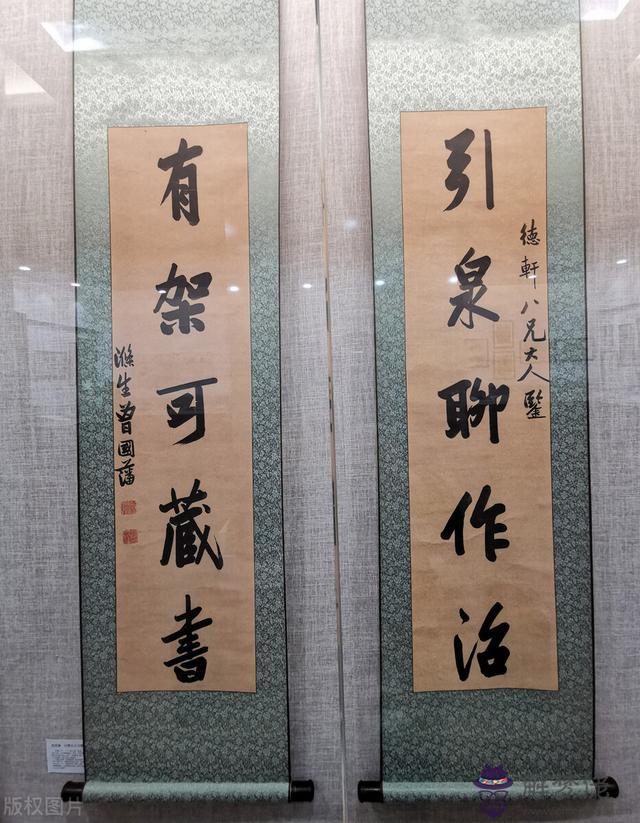 德軒八兄大人鑒
引泉聊作沼
有架可藏書
滌生曾國藩
版权图片